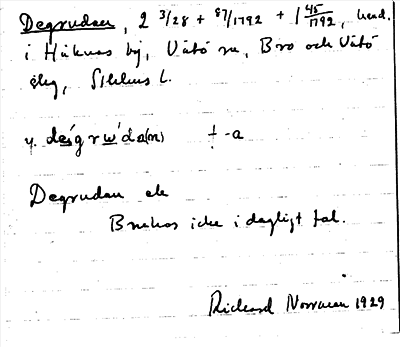 Degrudan, 2 3/28 + 87/1792 + 1 45/1792, hemd.
i Håknäs by, Vätö sn, Bro och Vätö
skg, Sthlms l.
y. de͟ś g r w͟' d a(n) † -a
Degrudan ell
Brukas icke i dagligt tal.
Rickard Norraeen 1929